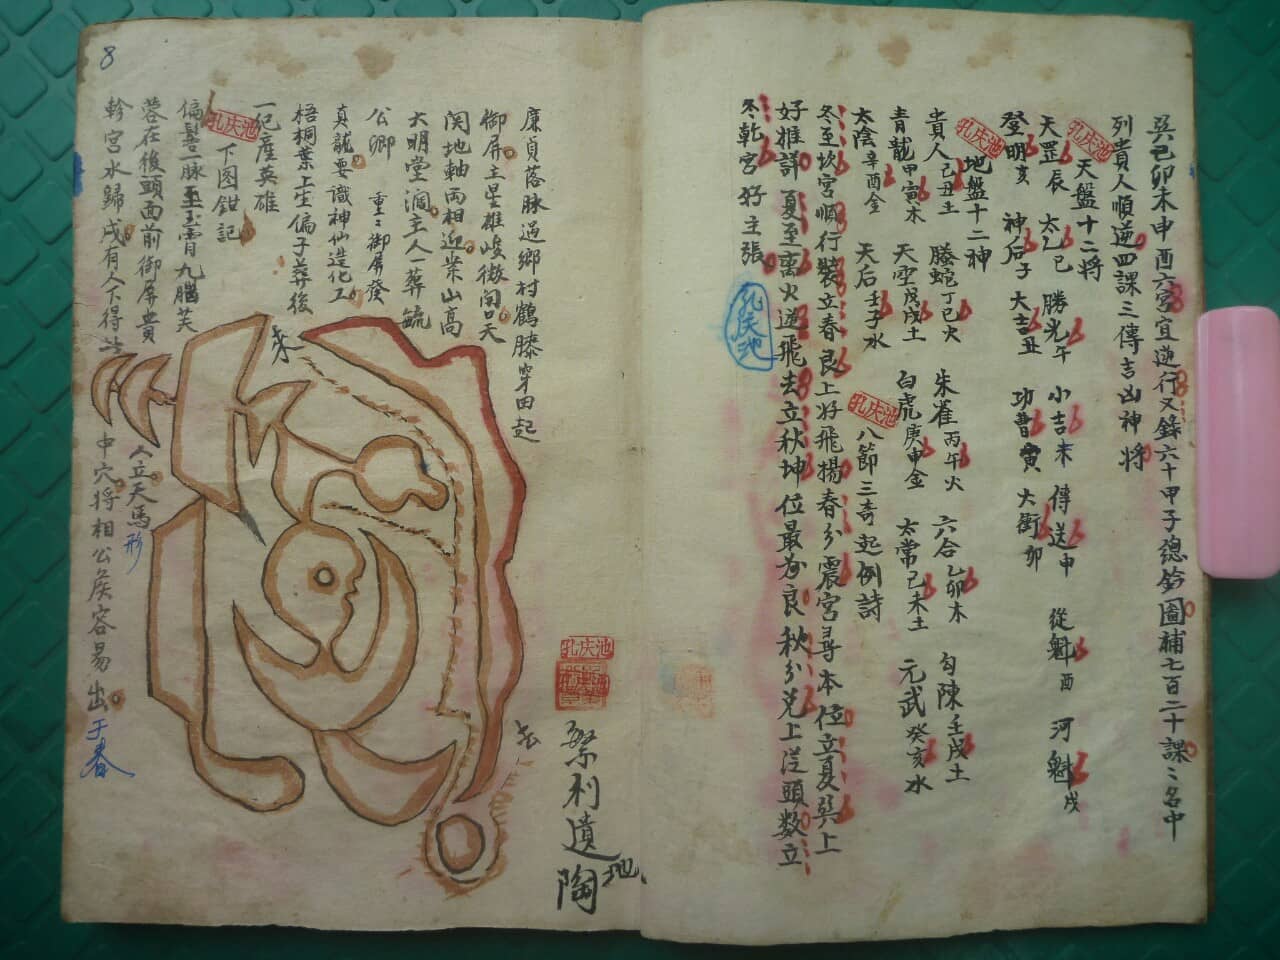 巳卯未申酉六宮宜逆行又錄六十甲子總鈐圖補七百二十課〻名中
列貴人順逆四課三傳吉凶神將
孔庆池
天盤十二將
天罡辰 太乙巳 勝光午 小吉未 傳送申 從魁酉 河魁戌
登明亥 神后子 大吉丑 功曹寅 大衝卯
孔庆池
地盤十二神
貴人己丑土 騰蛇丁巳火 朱雀丙午火 六合乙卯木 勾陳壬戌土
青龍甲寅木 天空戊戌土 白虎庚申金 太常己未土 元武癸亥水
太陰辛酉金 天后壬子水
孔庆池
八節三奇起例詩
冬至坎宮順行裝立春艮上好飛揚春分震宮尋本位立夏巽上
好推詳 夏至离火逆飛去立秋坤位最為良 秋分兌上從頭数立
冬乾宮好主張
孔庆池
廉貞落脉過鄉村鶴膝穿田起
御屏土星雄峻微開口天
関地軸両相迎案山高
大明堂濶主人一葬毓
公卿 重〻御屏發
真龍要識神仙造化工
梧桐葉上生偏子葬後
一宅產英雄
孔庆池
下图鉗記
偏髻一脉玉霄九腦芙
蓉在後頭面前御屏貴
軫宮水歸戌有人下得
中穴將相公侯容易出
人立天馬形
于春
8
孔庆池
繁利遺陶
地